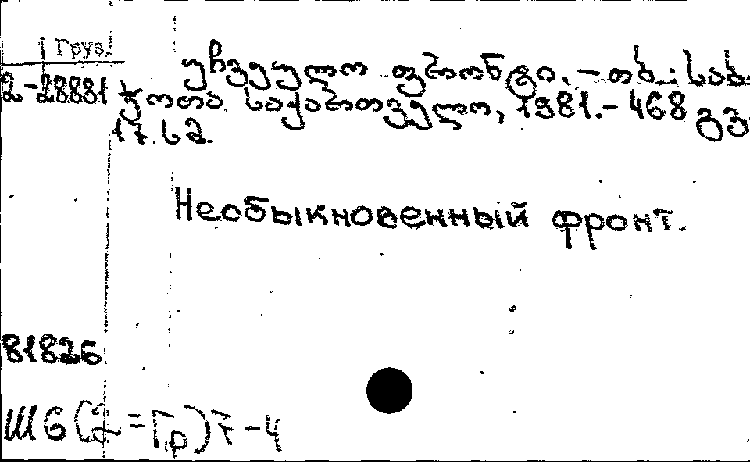 Груз.
უჩვეულო ფრონტი. – თბ.: საბ.
2-28881 ჭოთა საქართველო, 1981. – 468 გვ.
17.62.
Необыкновенный фронт.
81826
Ш6(2=Гр)7-4